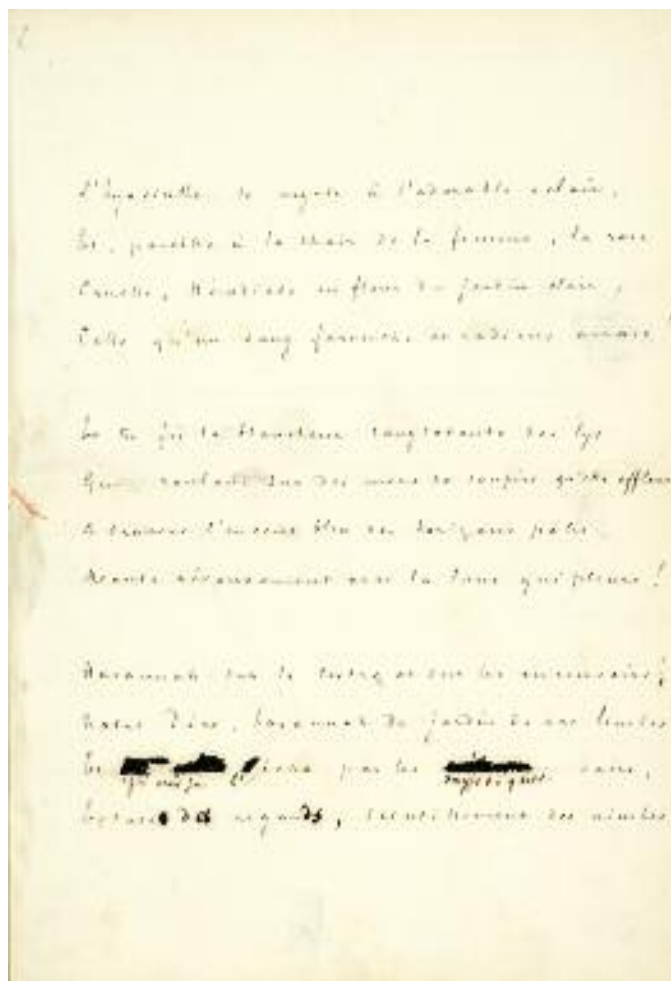 L'hyacinthe, le myrte à l'adorable éclair,
Et, pareille à la chair de la femme, la rose
Cruelle, Hérodiade en fleur du jardin clair,
Celle qu'un sang farouche et radieux arrose!
Et tu fis la blancheur sanglotante des lys
Qui roulant sur des mers de soupirs qu'elle effleure
A travers l'encens bleu des horizons pâlis
Monte rêveusement vers la lune qui pleure!
Hosannah sur le et sur les encensoirs,
Notre Père, hosannah du jardin de nos limbes
Et par les mystiques soirs,
Extase des regards, scintillement des nimbes